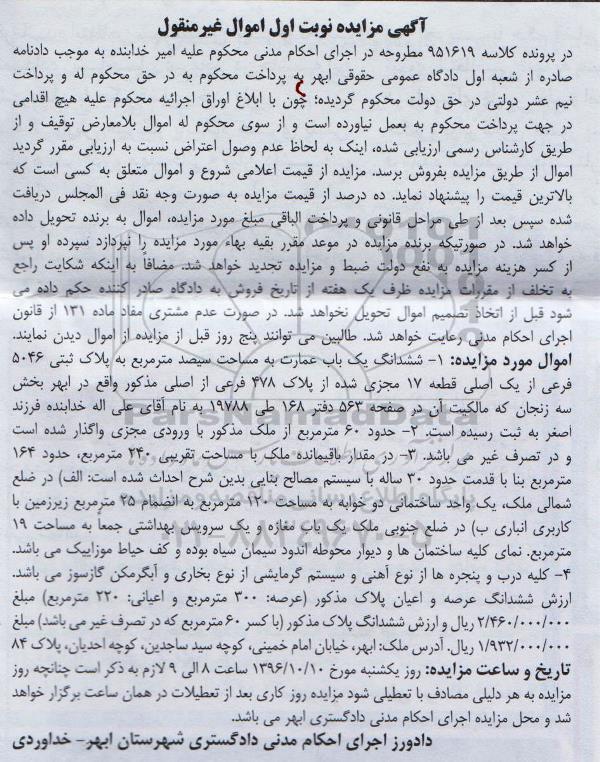 آگهی مزایده نوبت اول اموال غیرمنقول
در پرونده کلاسه ۹۵۱۶۱۹ مطروحه در اجرای احکام مدنی محکوم علیه امیر خدابنده به موجب دادنامه
صادره از شعبه اول دادگاه عمومی حقوقی ابهر به پرداخت محکوم به در حق محکوم له و پرداخت
نیم عشر دولتی در حق دولت محکوم گردیده؛ چون با ابلاغ اوراق اجرائیه محکوم علیه هیچ اقدامی
در جهت پرداخت محکوم به بعمل نیاورده است و از سوی محکوم له اموال بلامعارض توقیف و از
طریق کارشناس رسمی ارزیابی شده، اینک به لحاظ عدم وصول اعتراض نسبت به ارزیابی مقرر گردید
اموال از طریق مزایده بفروش برسد. مزایده از قیمت اعلامی شروع و اموال متعلق به کسی است که
بالاترین قیمت را پیشنهاد نماید. ده درصد از قیمت مزایده به صورت وجه نقد فی المجلس دریافت
شده سپس بعد از طی مراحل قانونی و پرداخت الباقی مبلغ مورد مزایده، اموال به برنده تحویل داده
خواهد شد. در صورتیکه برنده مزایده در موعد مقرر بقیه بهاء مورد مزایده را نپردازد سپرده او پس
از کسر هزینه مزایده به نفع دولت ضبط و مزایده تجدید خواهد شد. مضافاً به اینکه شکایت راجع
به تخلف از مقررات مزایده ظرف یک هفته از تاریخ فروش به دادگاه صادر کننده حکم داده می
شود قبل از اتخاذ تصمیم اموال تحویل نخواهد شد. در صورت عدم مشتری مفاد ماده ۱۳۱ از قانون
اجرای احکام مدنی رعایت خواهد شد. طالبین می توانند پنج روز قبل از مزایده از اموال دیدن نمایند.
اموال مورد مزایده: ۱- ششدانگ یک باب عمارت به مساحت سیصد مترمربع به پلاک ثبتی ۵۰۴۶
فرعی از یک اصلی قطعه ۱۷ مجزی شده از پلاک ۴۷۸ فرعی از اصلی مذکور واقع در ابهر بخش
سه زنجان که مالکیت آن در صفحه ۵۶۳ دفتر ۱۶۸ طی ۱۹۷۸۸ به نام آقای علی اله خدابنده فرزند
اصغر به ثبت رسیده است. ۲- حدود ۶۰ مترمربع از ملک مذکور با ورودی مجزی واگذار شده است
و در تصرف غیر می باشد. ۳- در مقدار باقیمانده ملک با مساحت تقریبی ۲۴۰ مترمربع، حدود ۱۶۴
مترمربع بنا با قدمت حدود ۳۰ ساله با سیستم مصالح بنایی بدین شرح احداث شده است: الف) در ضلع
شمالی ملک، یک واحد ساختمانی دو خوابه به مساحت ۱۲۰ مترمربع به انضمام ۲۵ مترمربع زیرزمین با
کاربری انباری ب) در ضلع جنوبی ملک یک باب مغازه و یک سرویس بهداشتی جمعاً به مساحت ۱۹
مترمربع. نمای کلیه ساختمان ها و دیوار محوطه اندود سیمان سیاه بوده و کف حیاط موزاییک می باشد.
۴- کلیه درب و پنجره ها از نوع آهنی و سیستم گرمایشی از نوع بخاری و آبگرمکن گازسوز می باشد.
ارزش ششدانگ عرصه و اعیان پلاک مذکور (عرصه: ۳۰۰ مترمربع و اعیانی: ۲۲۰ مترمربع) مبلغ
۲/۴۶۰/۰۰۰/۰۰۰ ریال و ارزش ششدانگ پلاک مذکور (با کسر ۶۰ مترمربع که در تصرف غیر می باشد) مبلغ
۱/۹۳۲/۰۰۰/۰۰۰ ریال. آدرس ملک: ابهر، خیابان امام خمینی، کوچه سید ساجدین، کوچه احدیان، پلاک ۸۴
تاریخ و ساعت مزایده: روز یکشنبه مورخ ۱۳۹۶/۱۰/۱۰ ساعت ۸ الی ۹ لازم به ذکر است چنانچه روز
مزایده به هر دلیلی مصادف با تعطیلی شود مزایده روز کاری بعد از تعطیلات در همان ساعت برگزار خواهد
شد و محل مزایده اجرای احکام مدنی دادگستری ابهر می باشد.
دادورز اجرای احکام مدنی دادگستری شهرستان ابهر- خداوردی